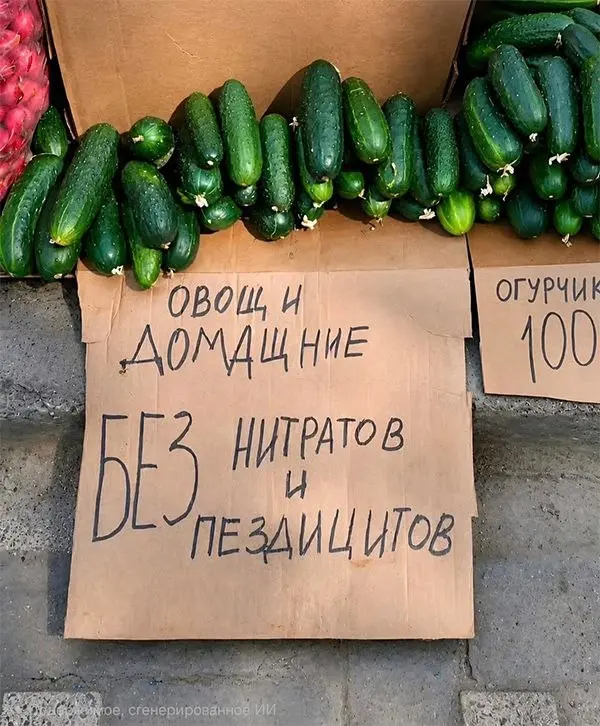 ОВОЩИ
ДОМАЩНИЕ
БЕЗ НИТРАТОВ
И
ПЕЗДИЦИТОВ
ОГУРЧИК
100
Содержимое, сгенерированное ИИ